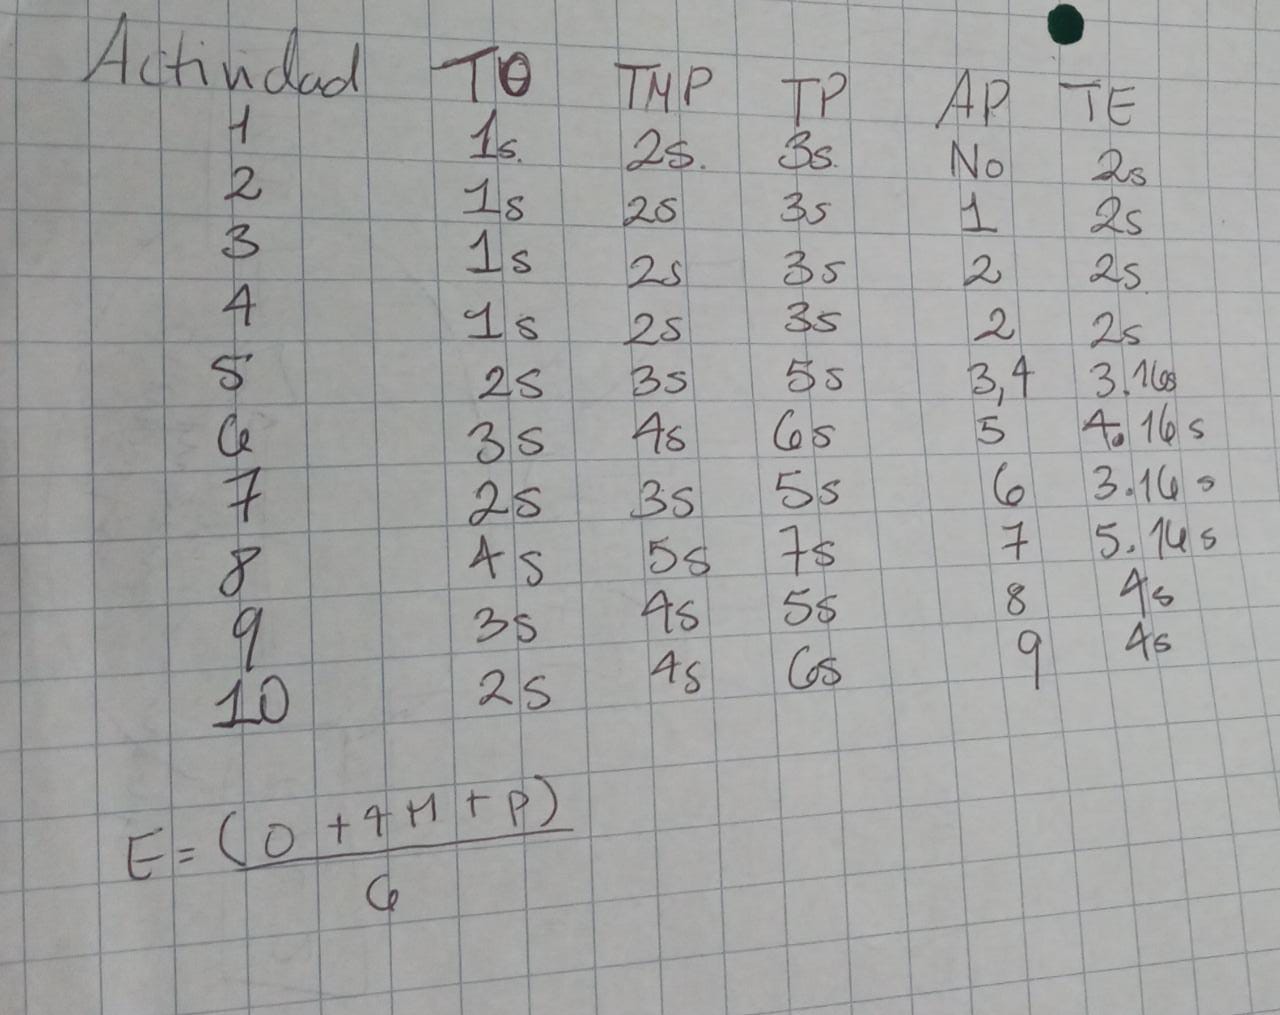 Actividad TO TMP TP AP TE
1 1s. 2s. 3s. No 2s
2 1s 2s 3s 1 2s
3 1s 2s 3s 2 2s.
4 1s 2s 3s 2 2s
5 2s 3s 5s 3,4 3.16s
6 3s 4s 6s 5 4.16s
7 2s 3s 5s 6 3.16s
8 4s 5s 7s 7 5.16s
9 3s 4s 5s 8 4s
10 2s 4s 6s 9 4s
E = (O + 4M + P)
6